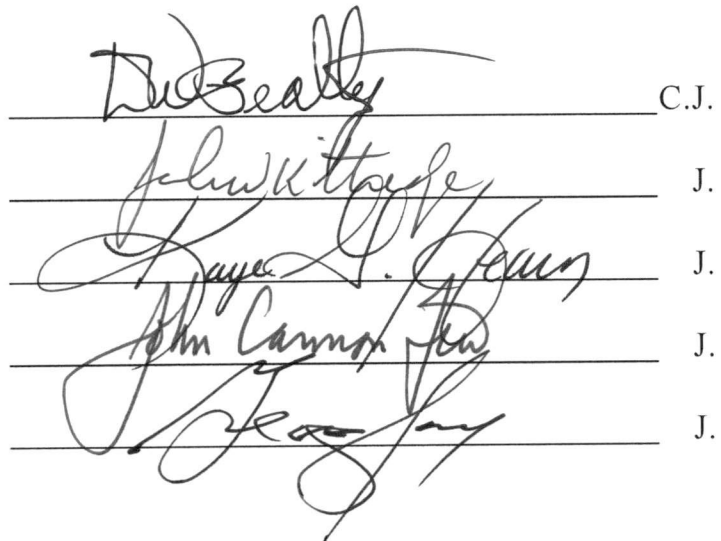 DWBeatty C.J.
John W Kittredge J.
Kaye G. Hearn J.
John Cannon Few J.
J.